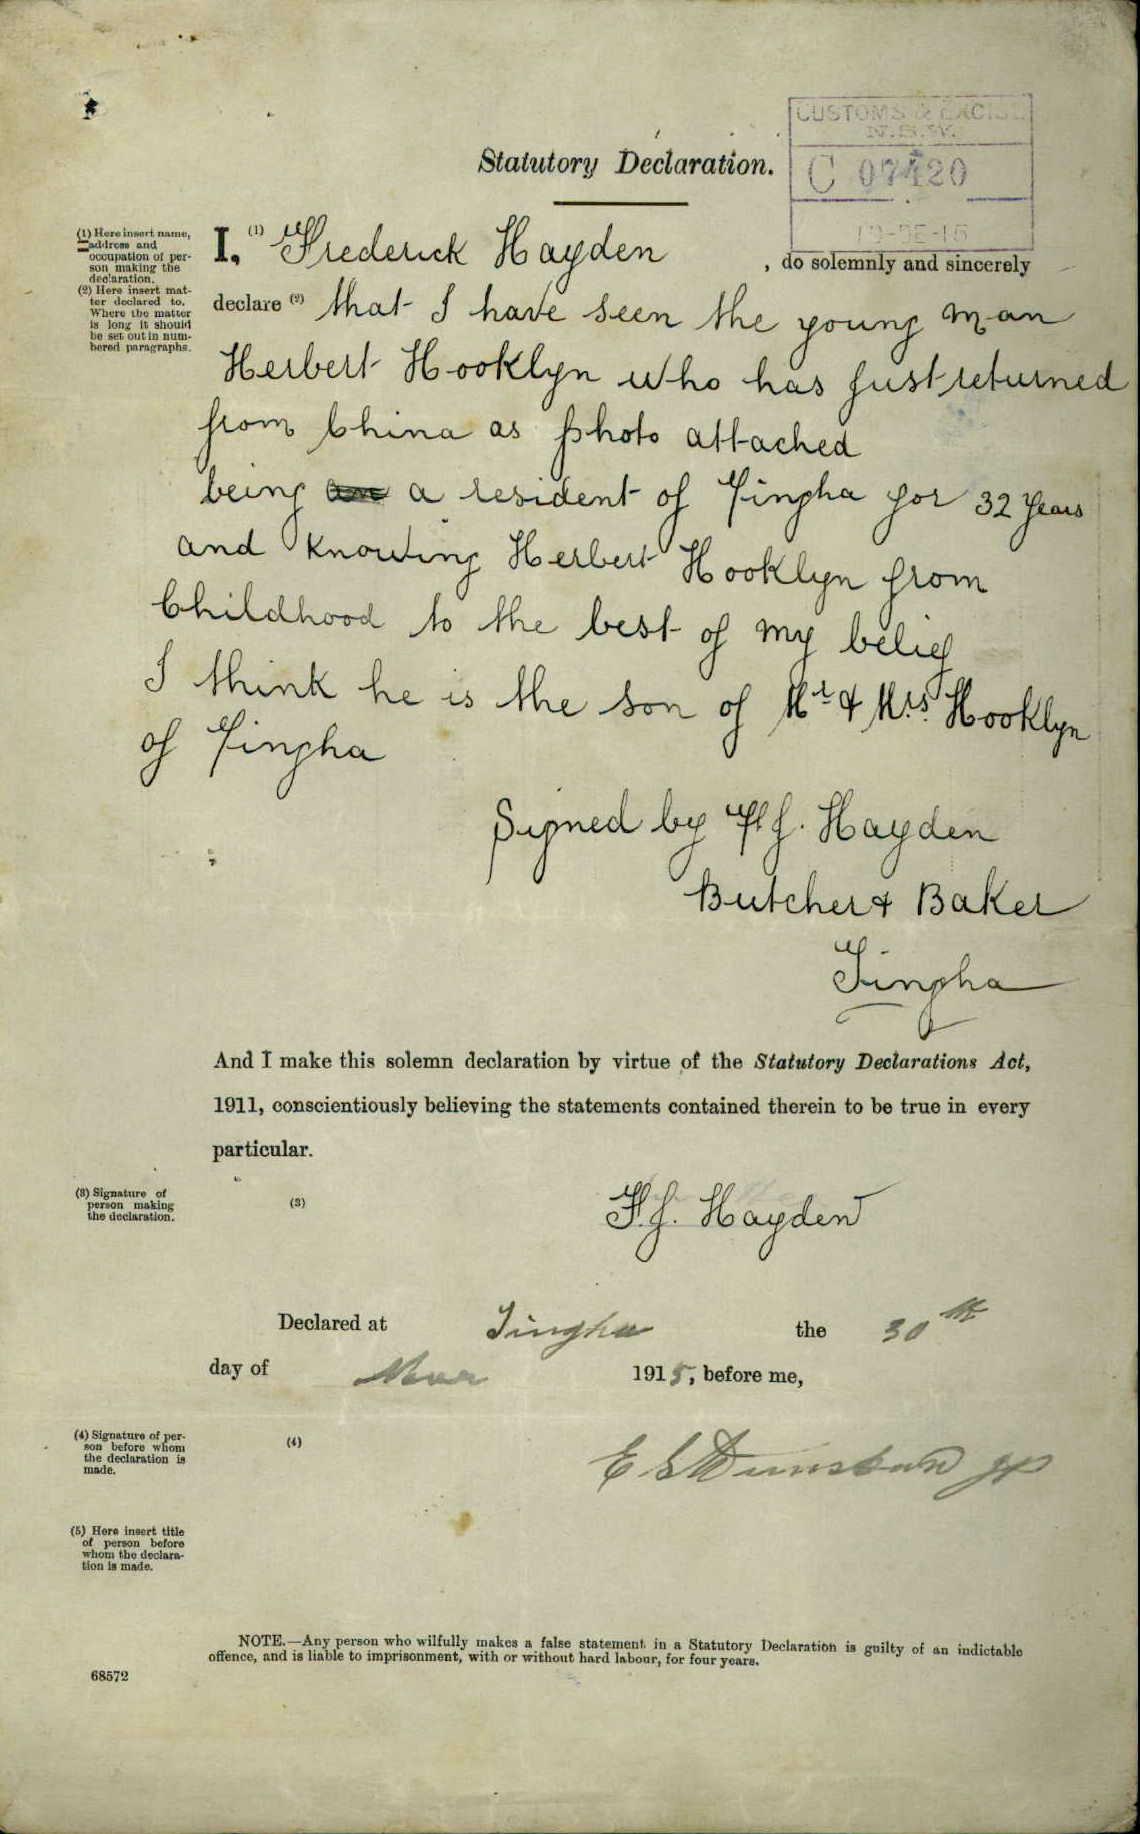 CUSTOMS & EXCISE
N.S.W.
C 07420
Statutory Declaration.
(1) Here insert name,
address and
occupation of per-
son making the
declaration.
(2) Here insert mat-
ter declared to.
Where the matter
is long it should
be set out in num-
bered paragraphs.
I, (1) Frederick Hayden , do solemnly and sincerely
declare (2) that I have seen the young man
Herbert Hooklyn who has just returned
from China as photo attached
being a resident of Tingha for 32 years
and knowing Herbert Hooklyn from
Childhood to the best of my belief
I think he is the son of Mr & Mrs. Hooklyn
of Tingha
Signed by F J. Hayden
Butcher & Baker
Tingha
And I make this solemn declaration by virtue of the Statutory Declarations Act,
1911, conscientiously believing the statements contained therein to be true in every
particular.
(3) Signature of
person making
the declaration.
(3) F. J. Hayden
Declared at Tingha the 30th
day of 1915, before me,
(4) Signature of per-
son before whom
the declaration is
made.
(4) E Dunstan JP
(5) Here insert title
of person before
whom the declara-
tion is made.
NOTE.—Any person who wilfully makes a false statement in a Statutory Declaration is guilty of an indictable
offence, and is liable to imprisonment, with or without hard labour, for four years.
68572